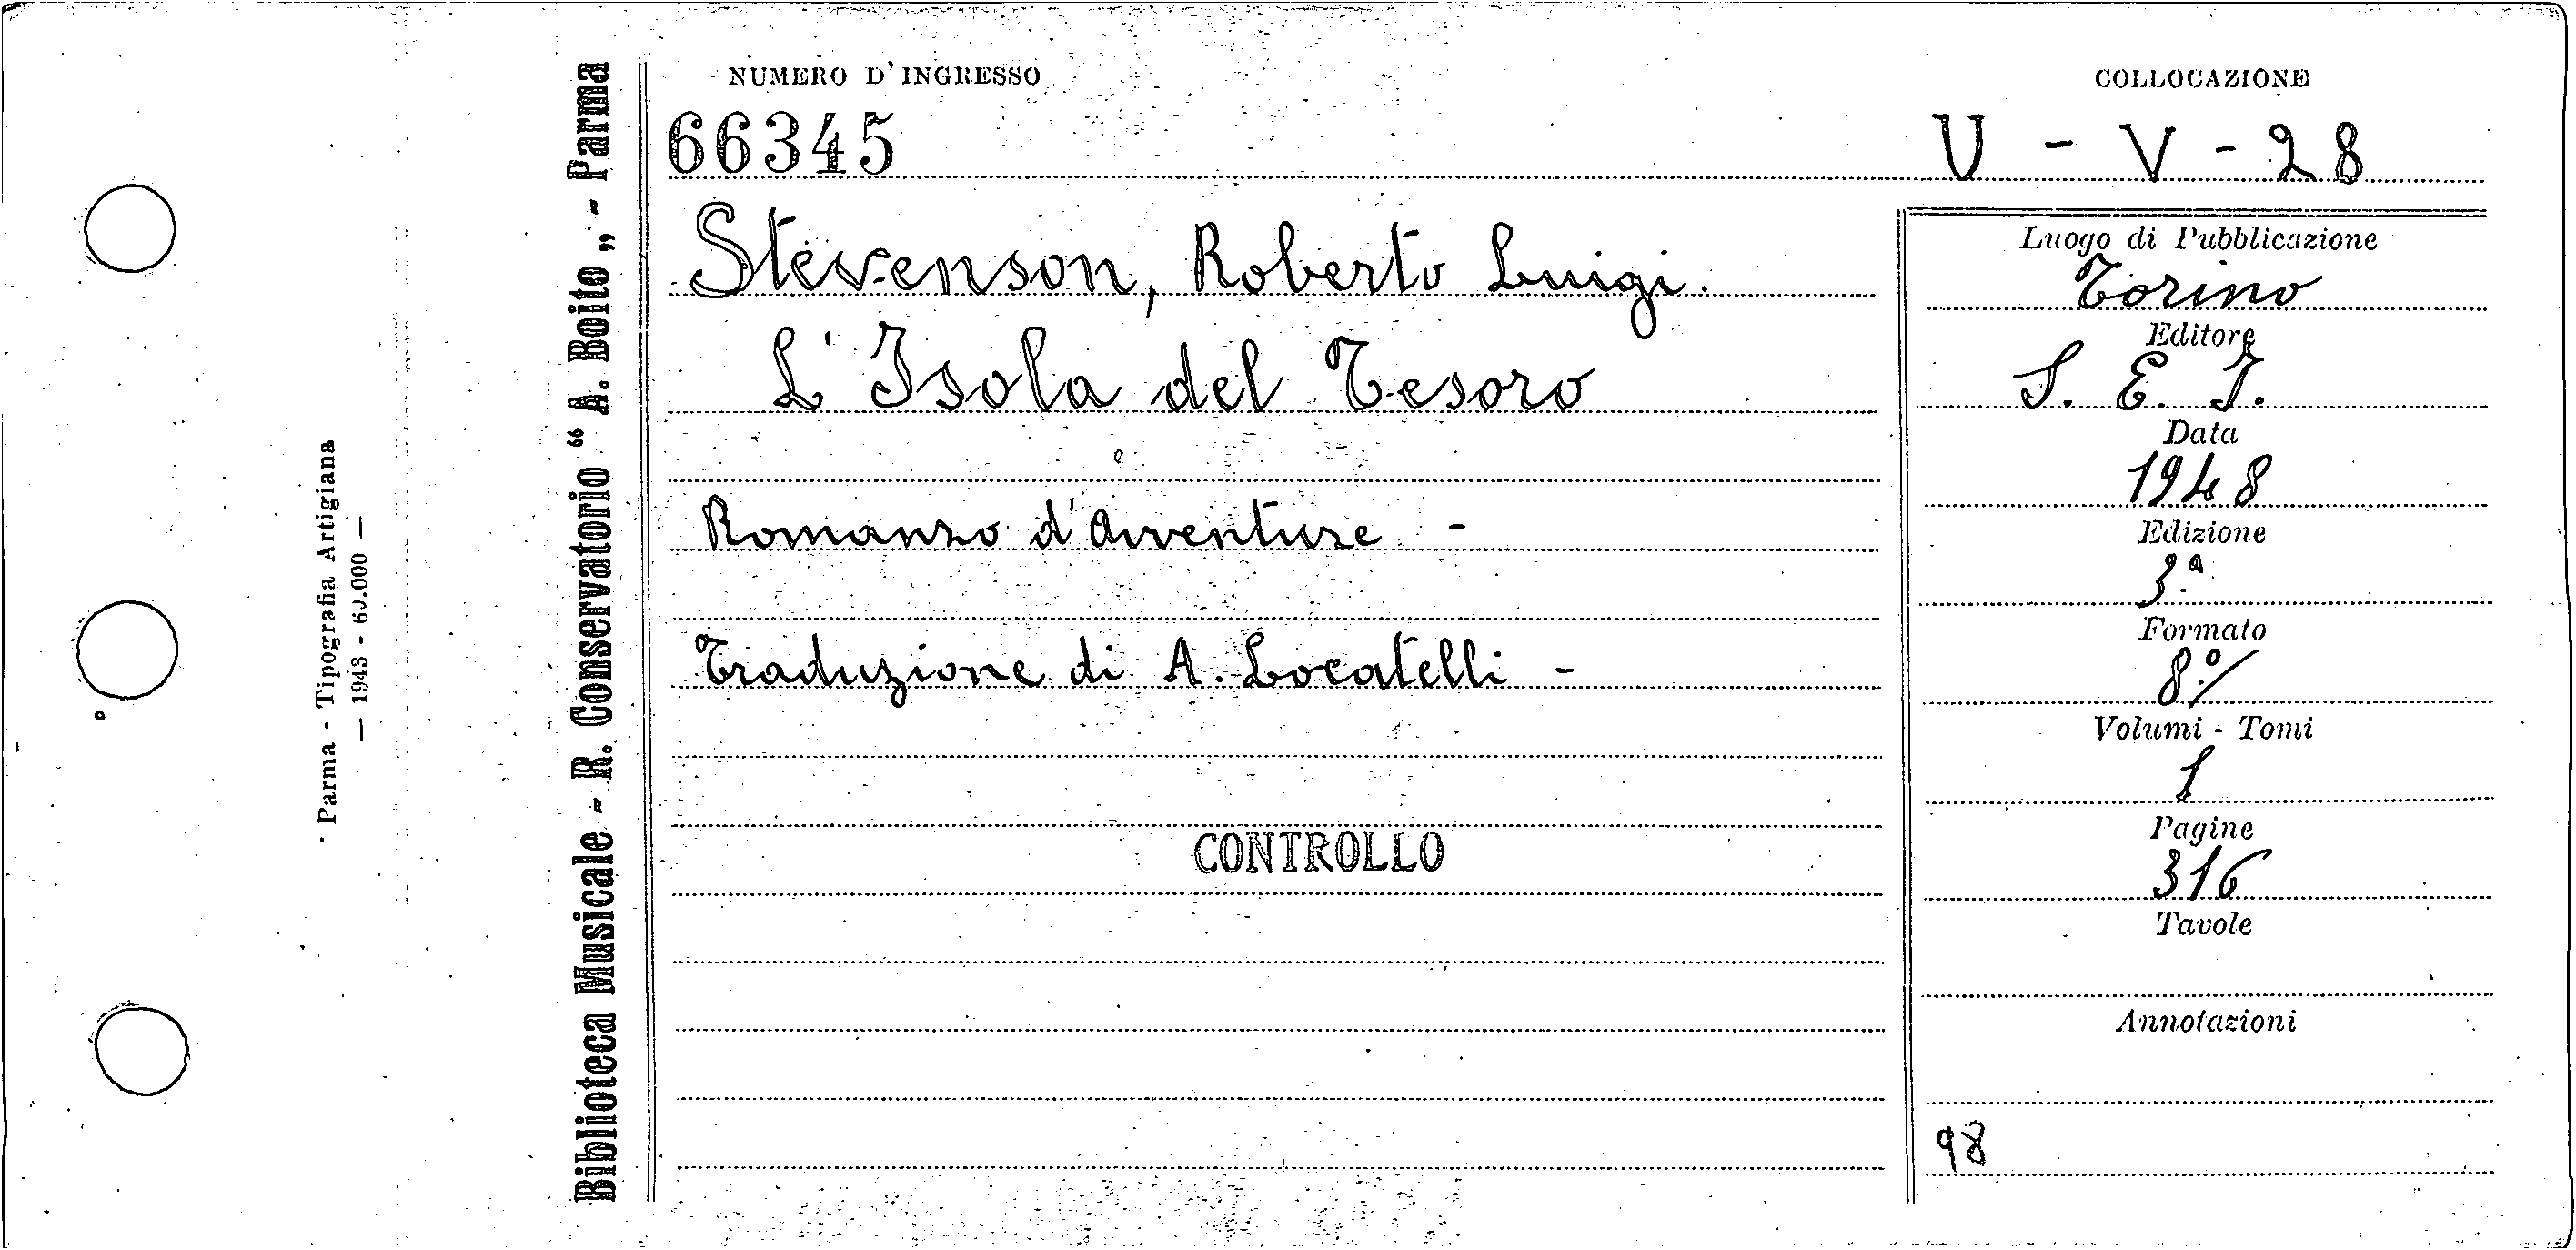 NUMERO D'INGRESSO
66345
COLLOCAZIONE
U - V - 28
Stevenson, Roberto Luigi.
L'Isola del Tesoro
Romanzo d'Avventure -
Traduzione di A. Locatelli -
CONTROLLO
Luogo di Pubblicazione
Torino
Editore
S. E. I.
Data
1948
Edizione
3ª
Formato
8º/
Volumi - Tomi
1
Pagine
316
Tavole
Annotazioni
98
Biblioteca Musicale - R. Conservatorio “ A. Boito „ - Parma
Parma - Tipografia Artigiana
— 1943 - 60.000 —